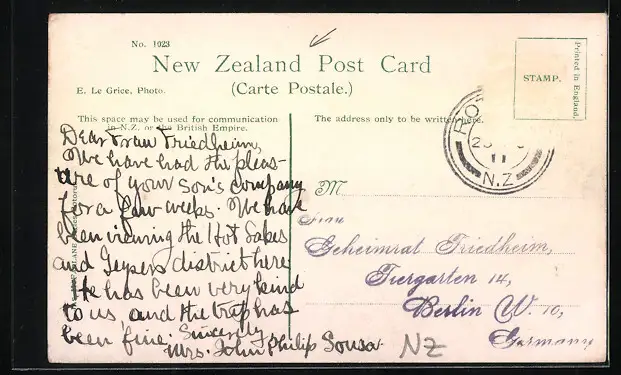 No. 1023
New Zealand Post Card
(Carte Postale.)
E. Le Grice, Photo.
STAMP.
Printed in England.
This space may be used for communication
in N.Z. or the British Empire.
The address only to be written here.
Dear Frau Friedheim,
We have had the pleas-
ure of your son's company
for a few weeks. We have
been viewing the Hot Lakes
and Geysers district here
He has been very kind
to us, and the trip has
been fine. Sincerely
Mrs. John Philip Sousa
M
Frau
Geheimrat Friedheim,
Tiergarten 14,
Berlin W. 10,
Germany
11
N.Z
NZ